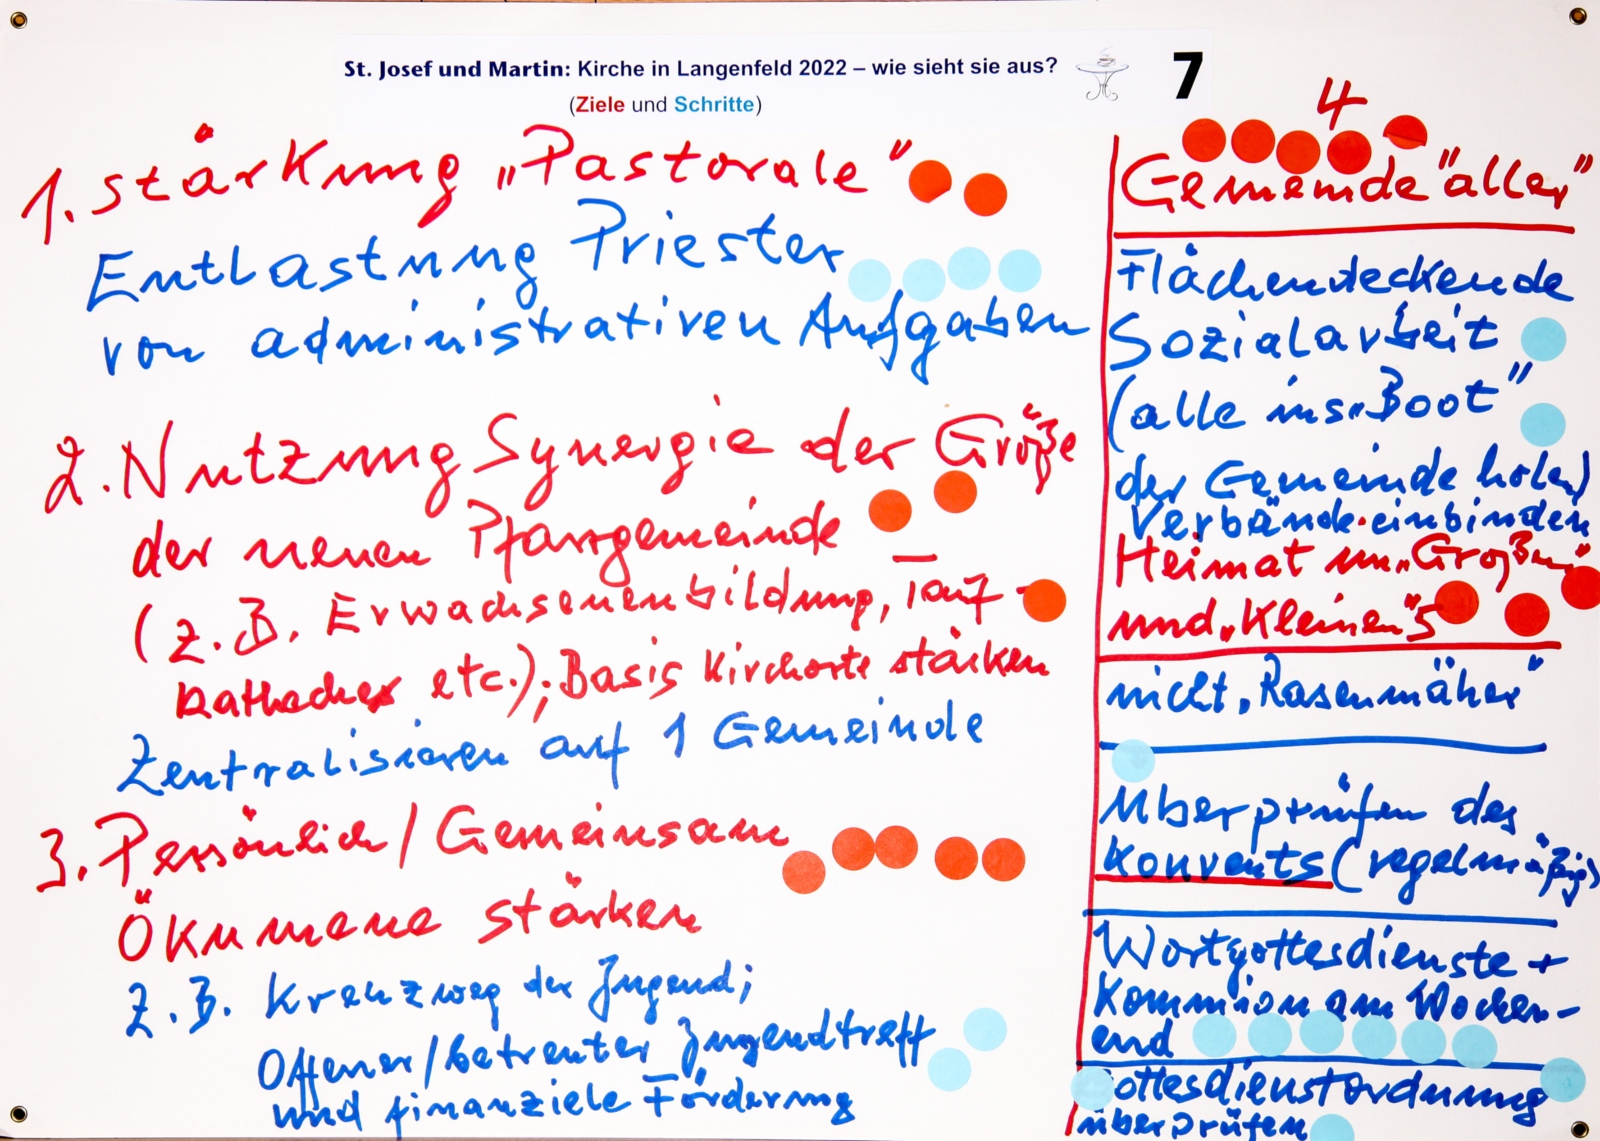 St. Josef und Martin: Kirche in Langenfeld 2022 – wie sieht sie aus?
(Ziele und Schritte)
7
1. Stärkung „Pastorale"
Entlastung Priester
von administrativen Aufgaben
2. Nutzung Synergie der Größe
der neuen Pfarrgemeinde
(z.B. Erwachsenenbildung, Tauf-
etc.); Basis Kirchorte stärken
Zentralisieren auf 1 Gemeinde
3. Persönlich / Gemeinsam
Ökumene stärken
z.B. Kreuzweg der Jugend;
Offener/betreuter Jugendtreff
und finanziele Förderung
4
Gemeinde "aller"
Flächendeckende
Sozialarbeit
(alle ins „Boot"
der Gemeinde holen)
Verbände einbinden
Heimat im „Großen"
und „Kleinen" 5
nicht „Rasenmäher"
Überprüfen des
Konvents (regelmäßig)
Wortgottesdienste +
Kommunion am Wochen-
end
Gottesdienstordnung
überprüfen